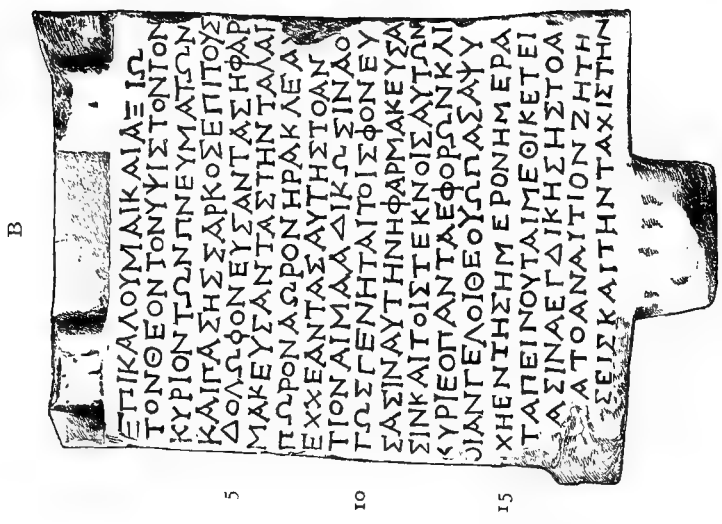 B
ΕΠΙΚΑΛΟΥΜΑΙΚΑΙΑΞΙΩ
ΤΟΝΘΕΟΝΤΟΝΥΨΙΣΤΟΝΤΟΝ
ΚΥΡΙΟΝΤΩΝΠΝΕΥΜΑΤΩΝ
ΚΑΙΠΑΣΗΣΣΑΡΚΟΣΕΠΙΤΟΥΣ
5 ΔΟΛΩΦΟΝΕΥΣΑΝΤΑΣΗΦΑΡ
ΜΑΚΕΥΣΑΝΤΑΣΤΗΝΤΑΛΑΙ
ΠΩΡΟΝΑΩΡΟΝΗΡΑΚΛΕΑΝ
ΕΧΧΕΑΝΤΑΣΑΥΤΗΣΤΟΑΝ
ΤΙΟΝΑΙΜΑΑΔΙΚΩΣΙΝΑΟ
10 ΤΩΣΓΕΝΗΤΑΙΤΟΙΣΦΟΝΕΥ
ΣΑΣΙΝΑΥΤΗΝΗΦΑΡΜΑΚΕΥΣΑ
ΣΙΝΚΑΙΤΟΙΣΤΕΚΝΟΙΣΑΥΤΩΝ
ΚΥΡΙΕΟΠΑΝΤΑΕΦΟΡΩΝΚΑΙ
ΟΙΑΝΓΕΛΟΙΘΕΟΥΩΠΑΣΑΨΥ
15 ΧΗΕΝΤΗΣΗΜΕΡΟΝΗΜΕΡΑ
ΤΑΠΕΙΝΟΥΤΑΙΜΕΘΙΚΕΤΕΙ
ΑΣΙΝΑΕΓΔΙΚΗΣΗΣΤΟΑ
ΑΤΟΑΝΑΥΤΙΟΝΖΗΤΗ
ΣΕΙΣΚΑΙΤΗΝΤΑΧΙΣΤΗΝ